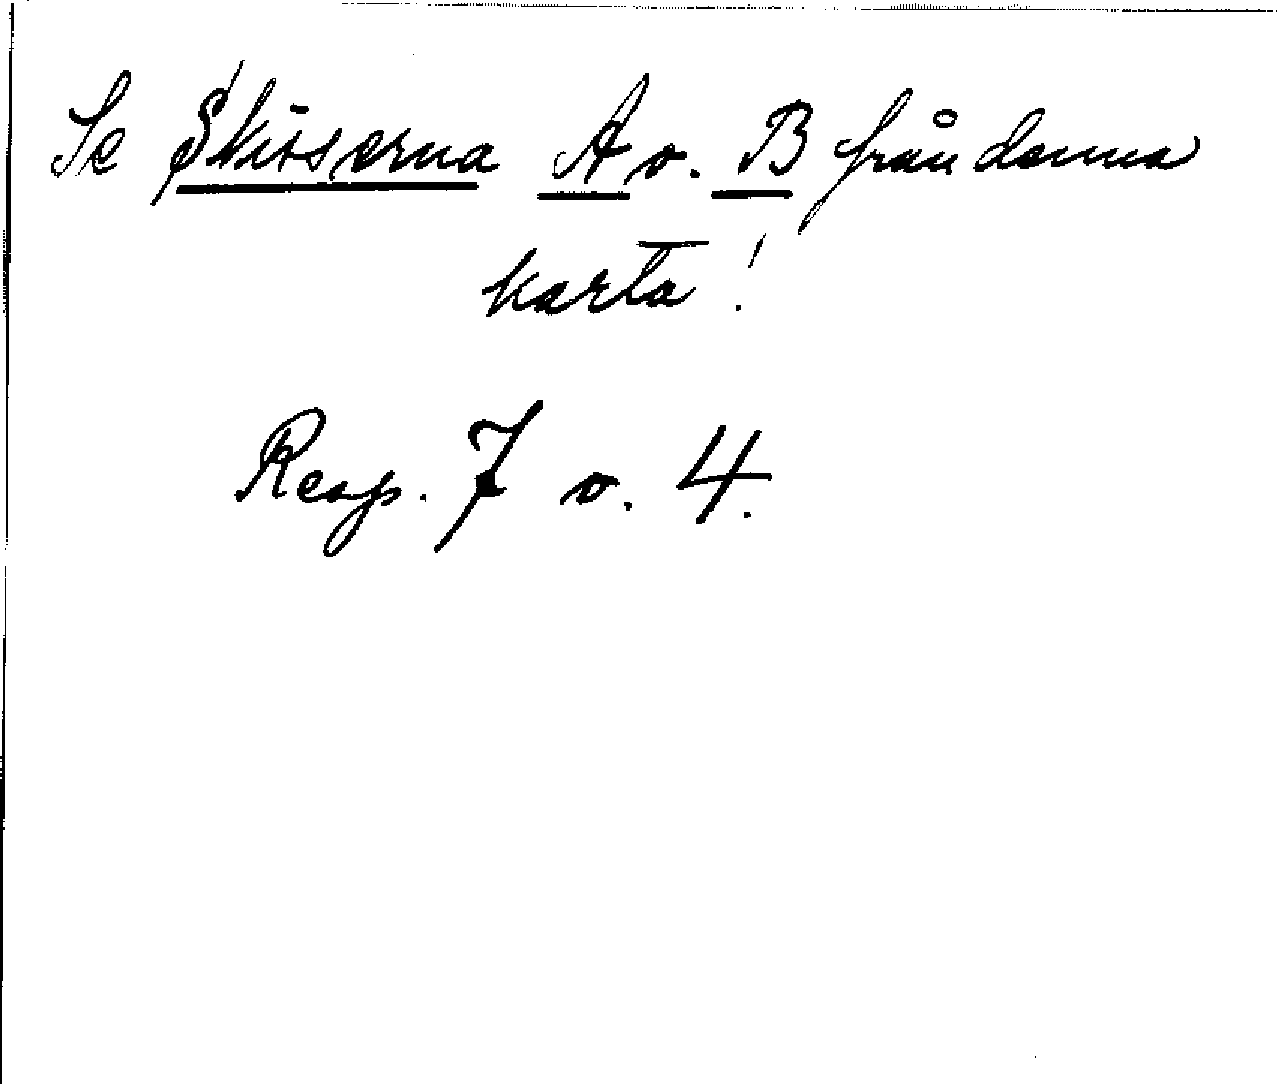 Se Skisserna A o. B från denna
karta!
Resp. 7 o. 4.